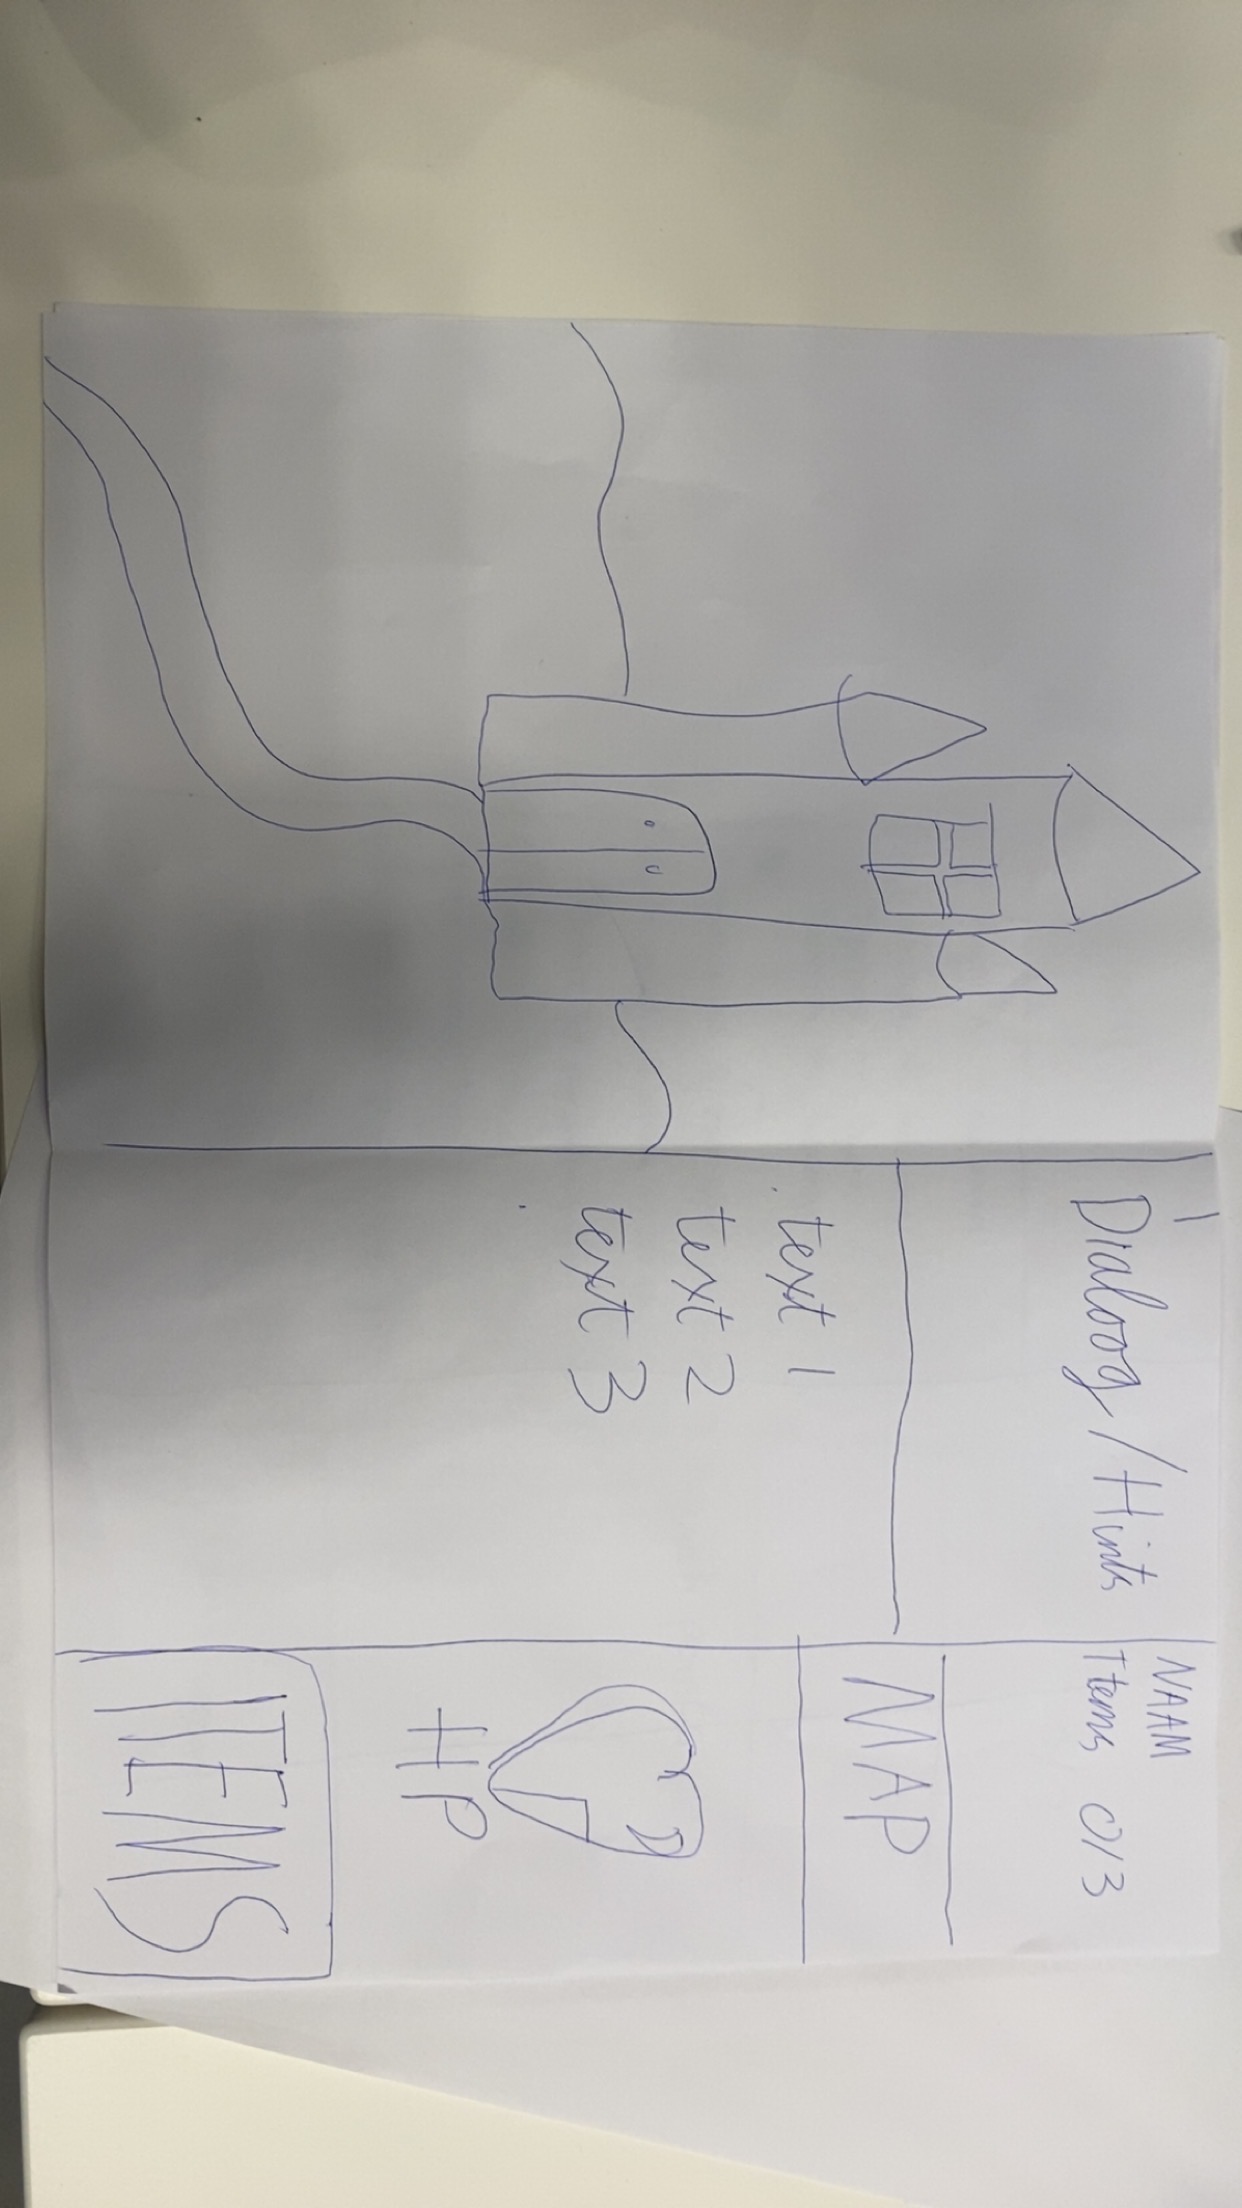 Dialoog/Hints
text 1
text 2
text 3
NAAM
Items 0/3
MAP
HP
ITEMS